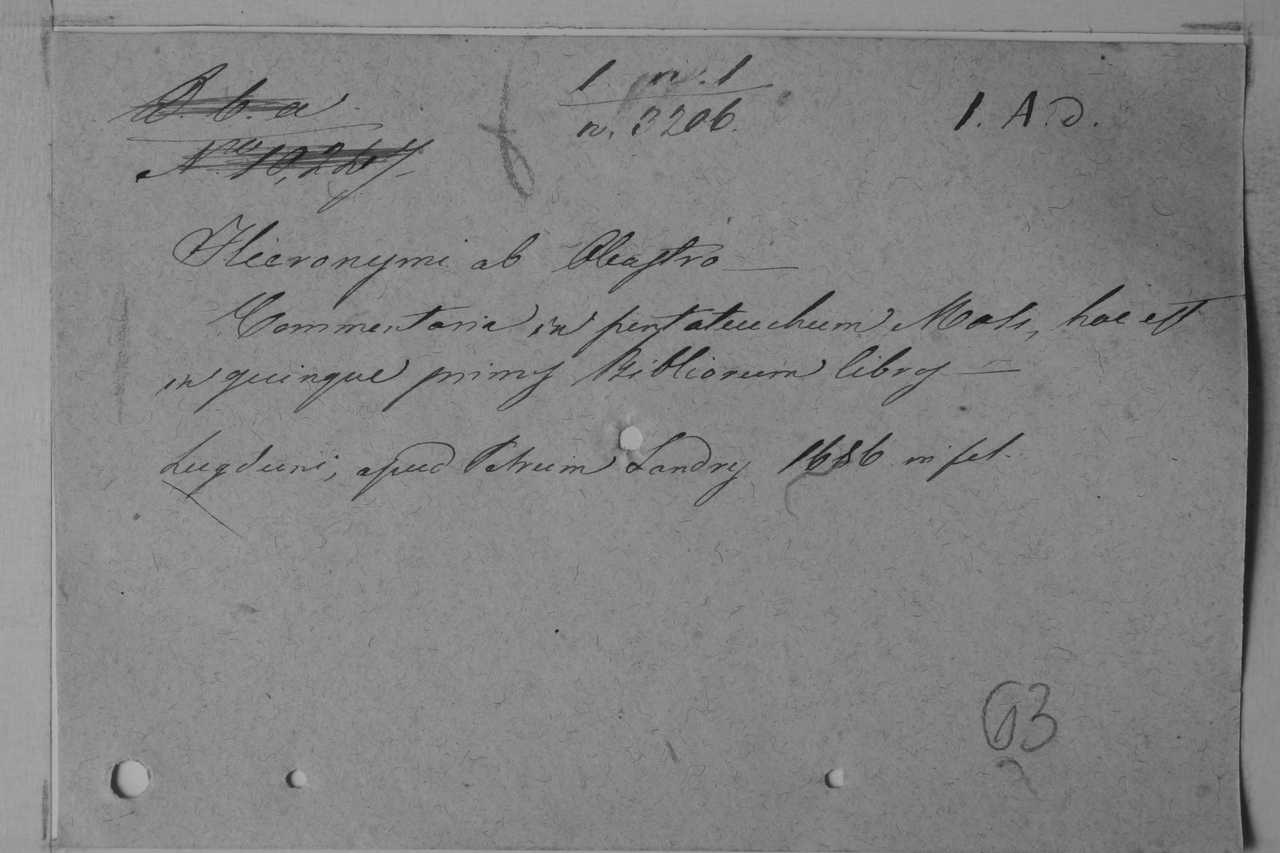 B. b. a
1. m. 1
N. 3206.
1. A. D.
Nro 10,247
Hieronymi ab Oleastro —
Commentaria in pentateuchum Mosi, hoc est
in quinque primos Bibliorum libros —
Lugduni, apud Petrum Landry 1686 in fol.